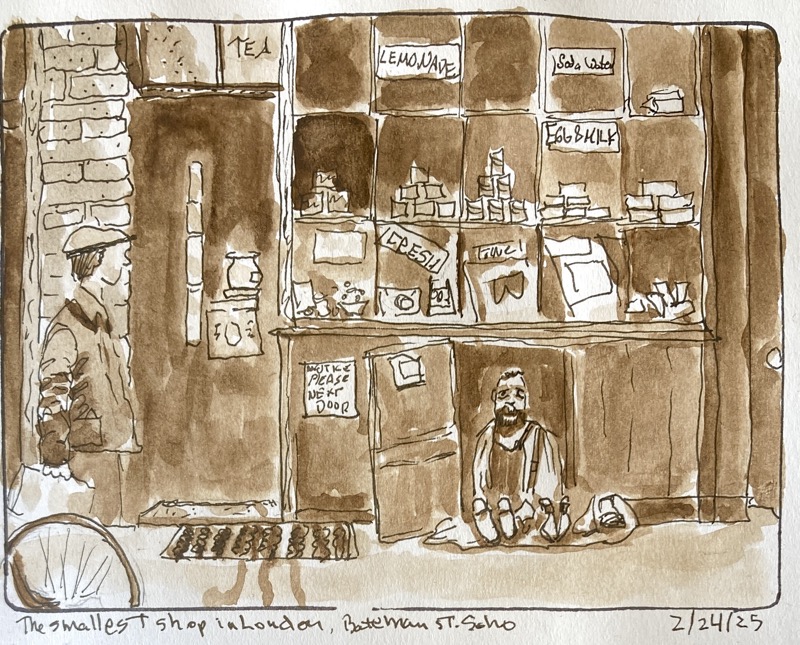 TEA
LEMONADE
Soda Water
EGG & MILK
FRESH
NOTICE
PLEASE
NEXT
DOOR
The smallest shop in London, Bateman ST. Soho
2/24/25